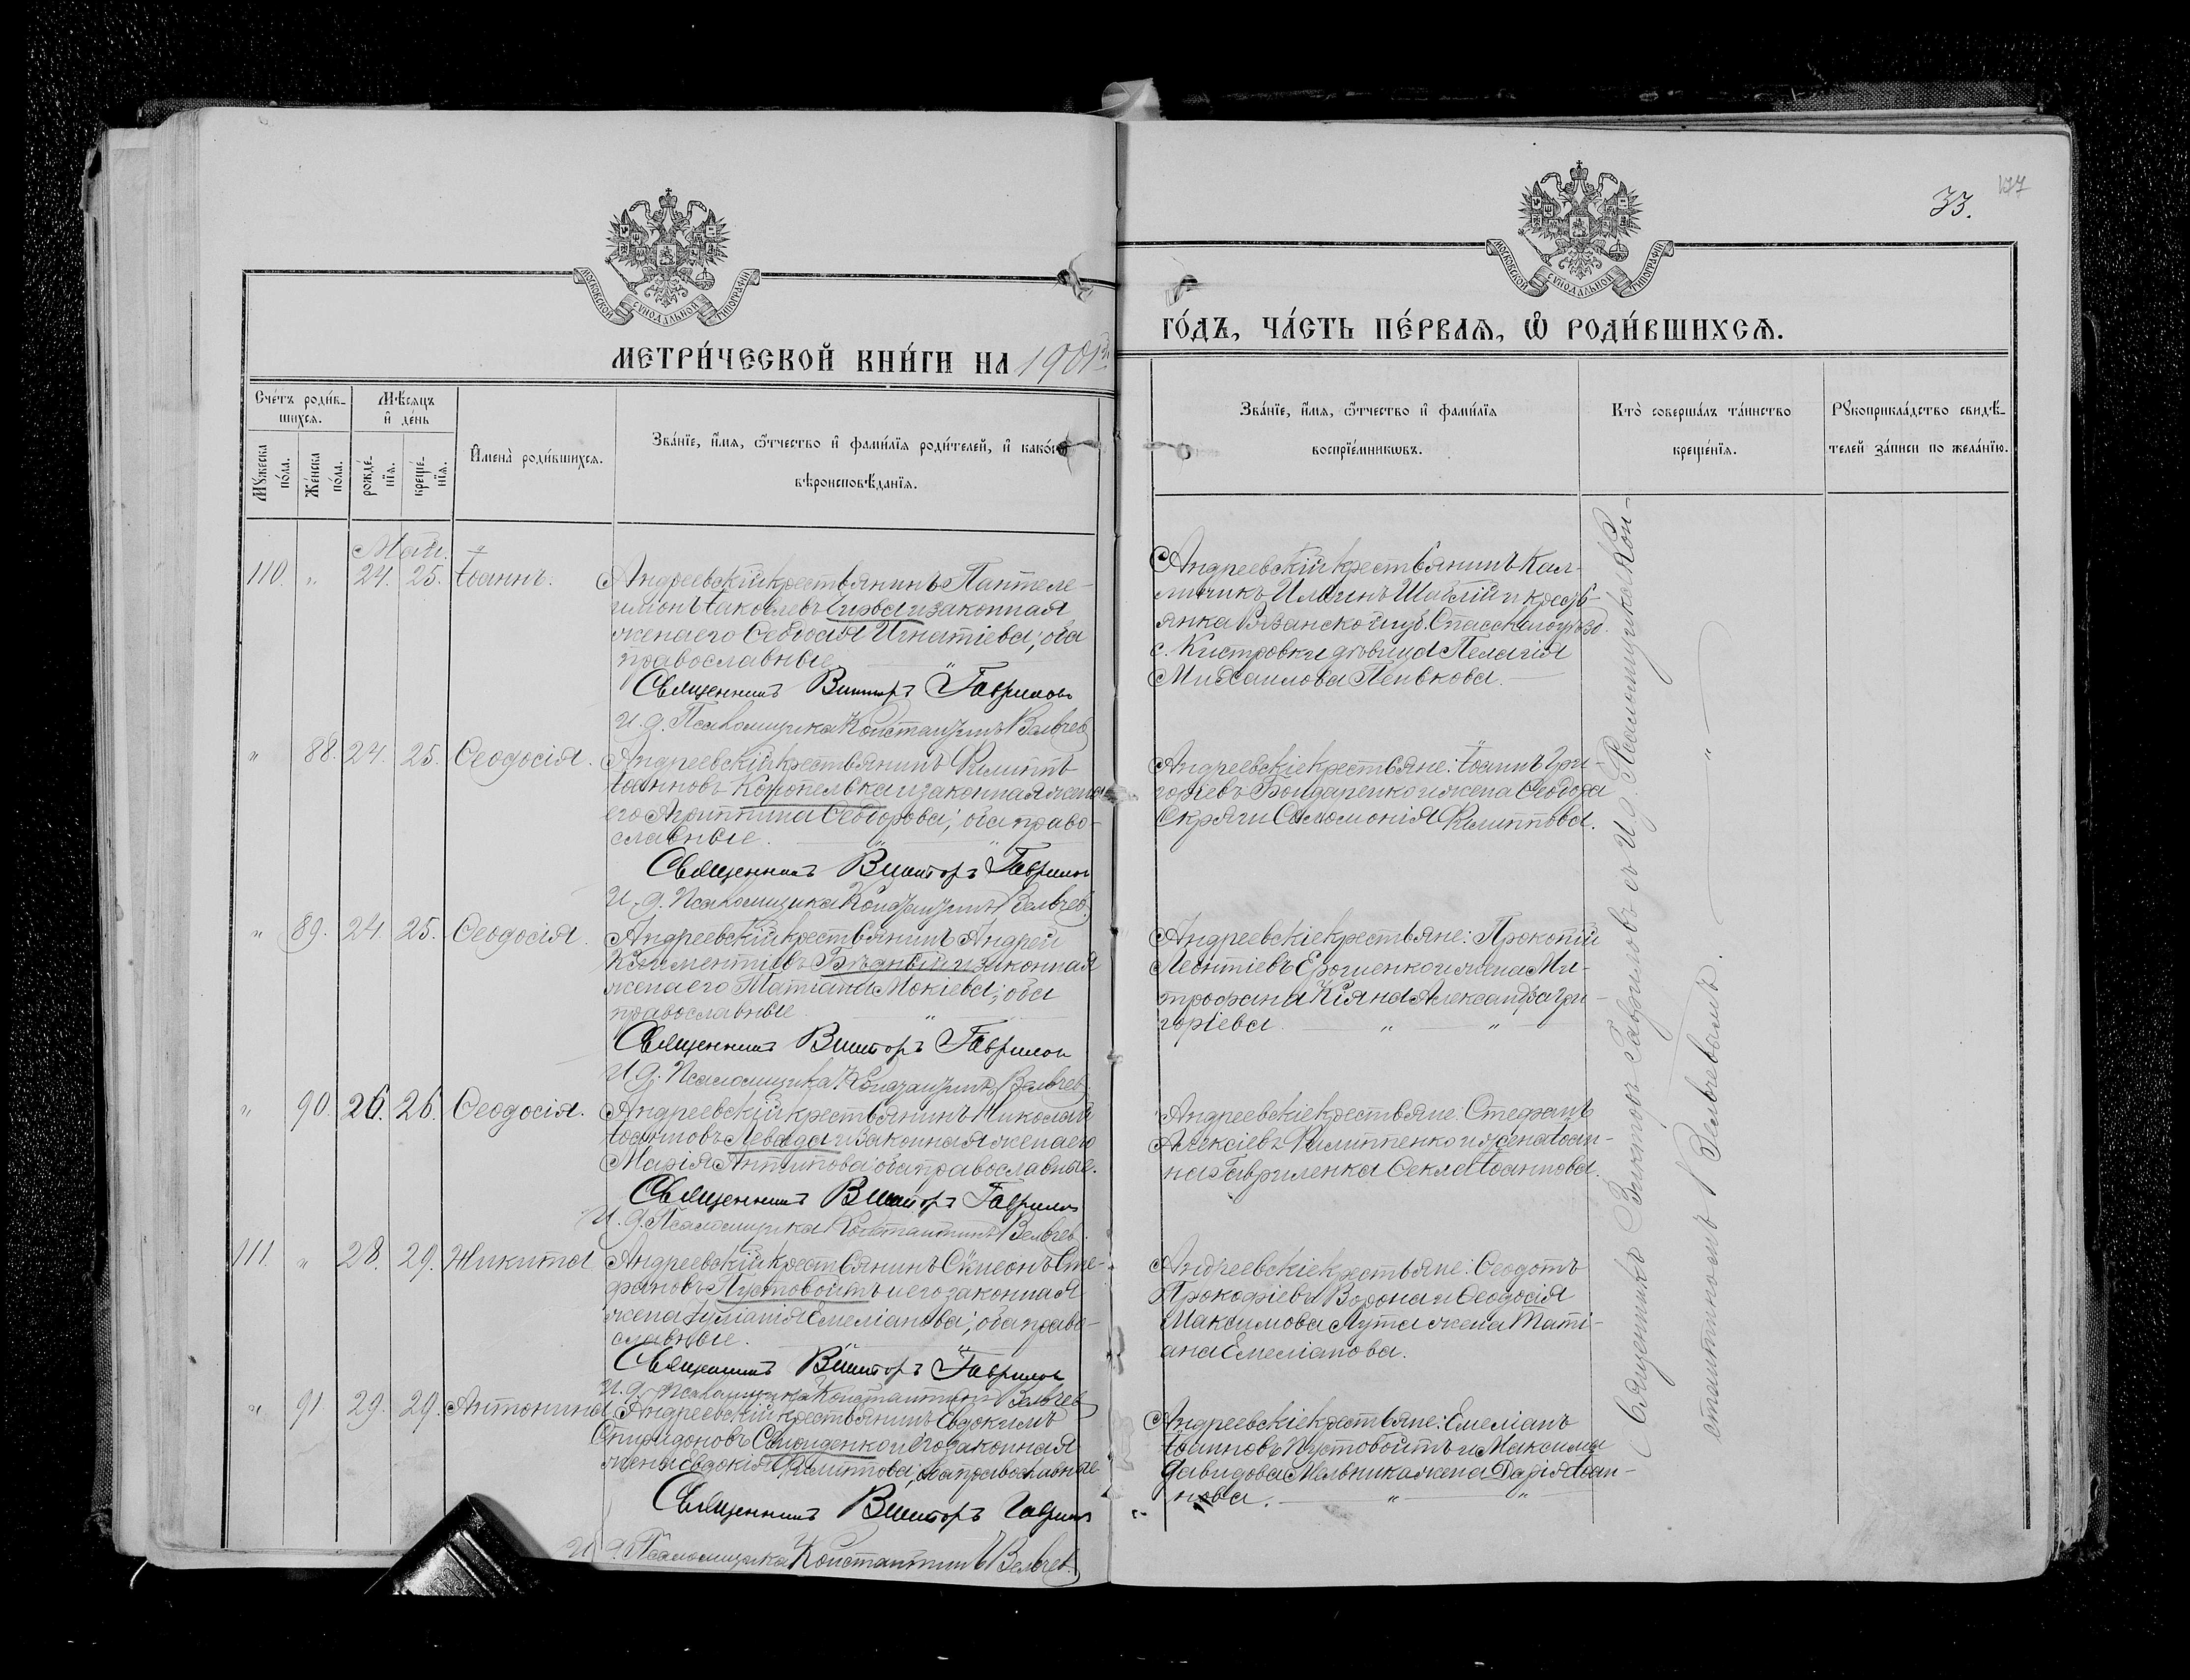 177
33.
МОСКОВСКОЙ СѴНОДАЛЬНОЙ ТИПОГРАФІИ
МОСКОВСКОЙ СѴНОДАЛЬНОЙ ТИПОГРАФІИ
МЕТРИ́ЧЕСКОЙ КНИ́ГИ НА 1901й
ГО́ДЪ, ЧА́СТЬ ПЕ́РВАЯ, Ѡ РОДИ́ВШИХСЯ.
Сче́тъ роди́в-
шихся.
Мѣ́сяцъ
и҆ де́нь
Мꙋжеска
по́ла.
Же́нска
по́ла.
рожде́-
нїя.
креще́-
нїя.
И҆мена̀ роди́вшихся.
Зва́нїе, и҆́мя, ѻ҆́тчество и҆ фами́лїя роди́телей, и҆ како́гѡ
вѣроисповѣ́данїя.
Зва́нїе, и҆́мя, ѻ҆́тчество и҆ фами́лїя
воспрїе́мникѡвъ.
Кто̀ соверша́лъ та́инство
креще́нїя.
Рꙋкоприкла́дство свидѣ́-
телей за́писи по жела́нїю.
Май.
110. „ 24. 25. Іоаннъ.
Андреевскій крестьянинъ Пантеле-
имонъ Іаковлевъ Чирва и законная
жена его Ѳеодосія Игнатіева; оба
православные. „
Священникъ Викторъ Гавриловъ
И. д. Псаломщика Константинъ Вельчев
Андреевскій крестьянинъ Кал-
линикъ Ильинъ Шаблій и кресть-
янка Рязанской губ. Спасскаго уѣзд.
с. Кистровки дѣвица Пелагія
Михаилова Пенькова.
„ 88. 24. 25. Ѳеодосія.
Андреевскій крестьянинъ Филиппъ
Іоанновъ Коропелька и законная жена
его Агриппина Ѳеодорова; оба право-
славные. „ „
Священникъ Викторъ Гаврилов
И. д. Псаломщика Константинъ Вельчев.
Андреевскіе крестьяне: Іоаннъ Гри-
горіевъ Бондаренко и жена Ѳеодора
Скряги Саломонія Филиппова.
„ 89. 24. 25. Ѳеодосія.
Андреевскій крестьянинъ Андрей
Климентіевъ Бѣдный и законная
жена его Татіана Мокіева; оба
православные. „
Священникъ Викторъ Гаврилов
И. д. Псаломщика Константинъ Вельчев.
Андреевскіе крестьяне: Прокопій
Леонтіевъ Ерошенко и жена Ми-
трофана Кіяна Александра Гри-
горіева. „ „
„ 90. 26. 26. Ѳеодосія.
Андреевскій крестьянинъ Николай
Іоанновъ Левада и законная жена его
Марія Антипова; оба православные.
Священникъ Викторъ Гаврилов
И. д. Псаломщика Константинъ Вельчев.
Андреевскіе крестьяне: Стефанъ
Алексіевъ Филиппенко и жена Іоан-
на Гавриленка Ѳекла Іоаннова.
111. „ 28. 29. Никита
Андреевскій крестьянинъ Сѵмеонъ Сте-
фановъ Пустовойтъ и его законная
жена Іуліанія Емеліанова; оба право-
славные.
Священникъ Викторъ Гаврилов
И. д. Псаломщика Константинъ Вельчев
Андреевскіе крестьяне: Ѳеодотъ
Прокофіевъ Ворона и Ѳеодосія
Максимова Лута жена Тати-
ана Емеліанова.
„ 91. 29. 29. Антонина
Андреевскій крестьянинъ Евдокимъ
Спиридоновъ и его законная
жена Евдокія Филиппова; оба православные
Священникъ Викторъ Гаврилов
И. д. Псаломщика Константинъ Вельчев.
Андреевскіе крестьяне: Емеліанъ
Іоанновъ Пустовойтъ и Максима
Давидова Мельника жена Дарія Іоан-
нова. „ „
Священникъ Викторъ Гавриловъ съ И. д. Псаломщика Кон-
стантиномъ Вельчевымъ. „